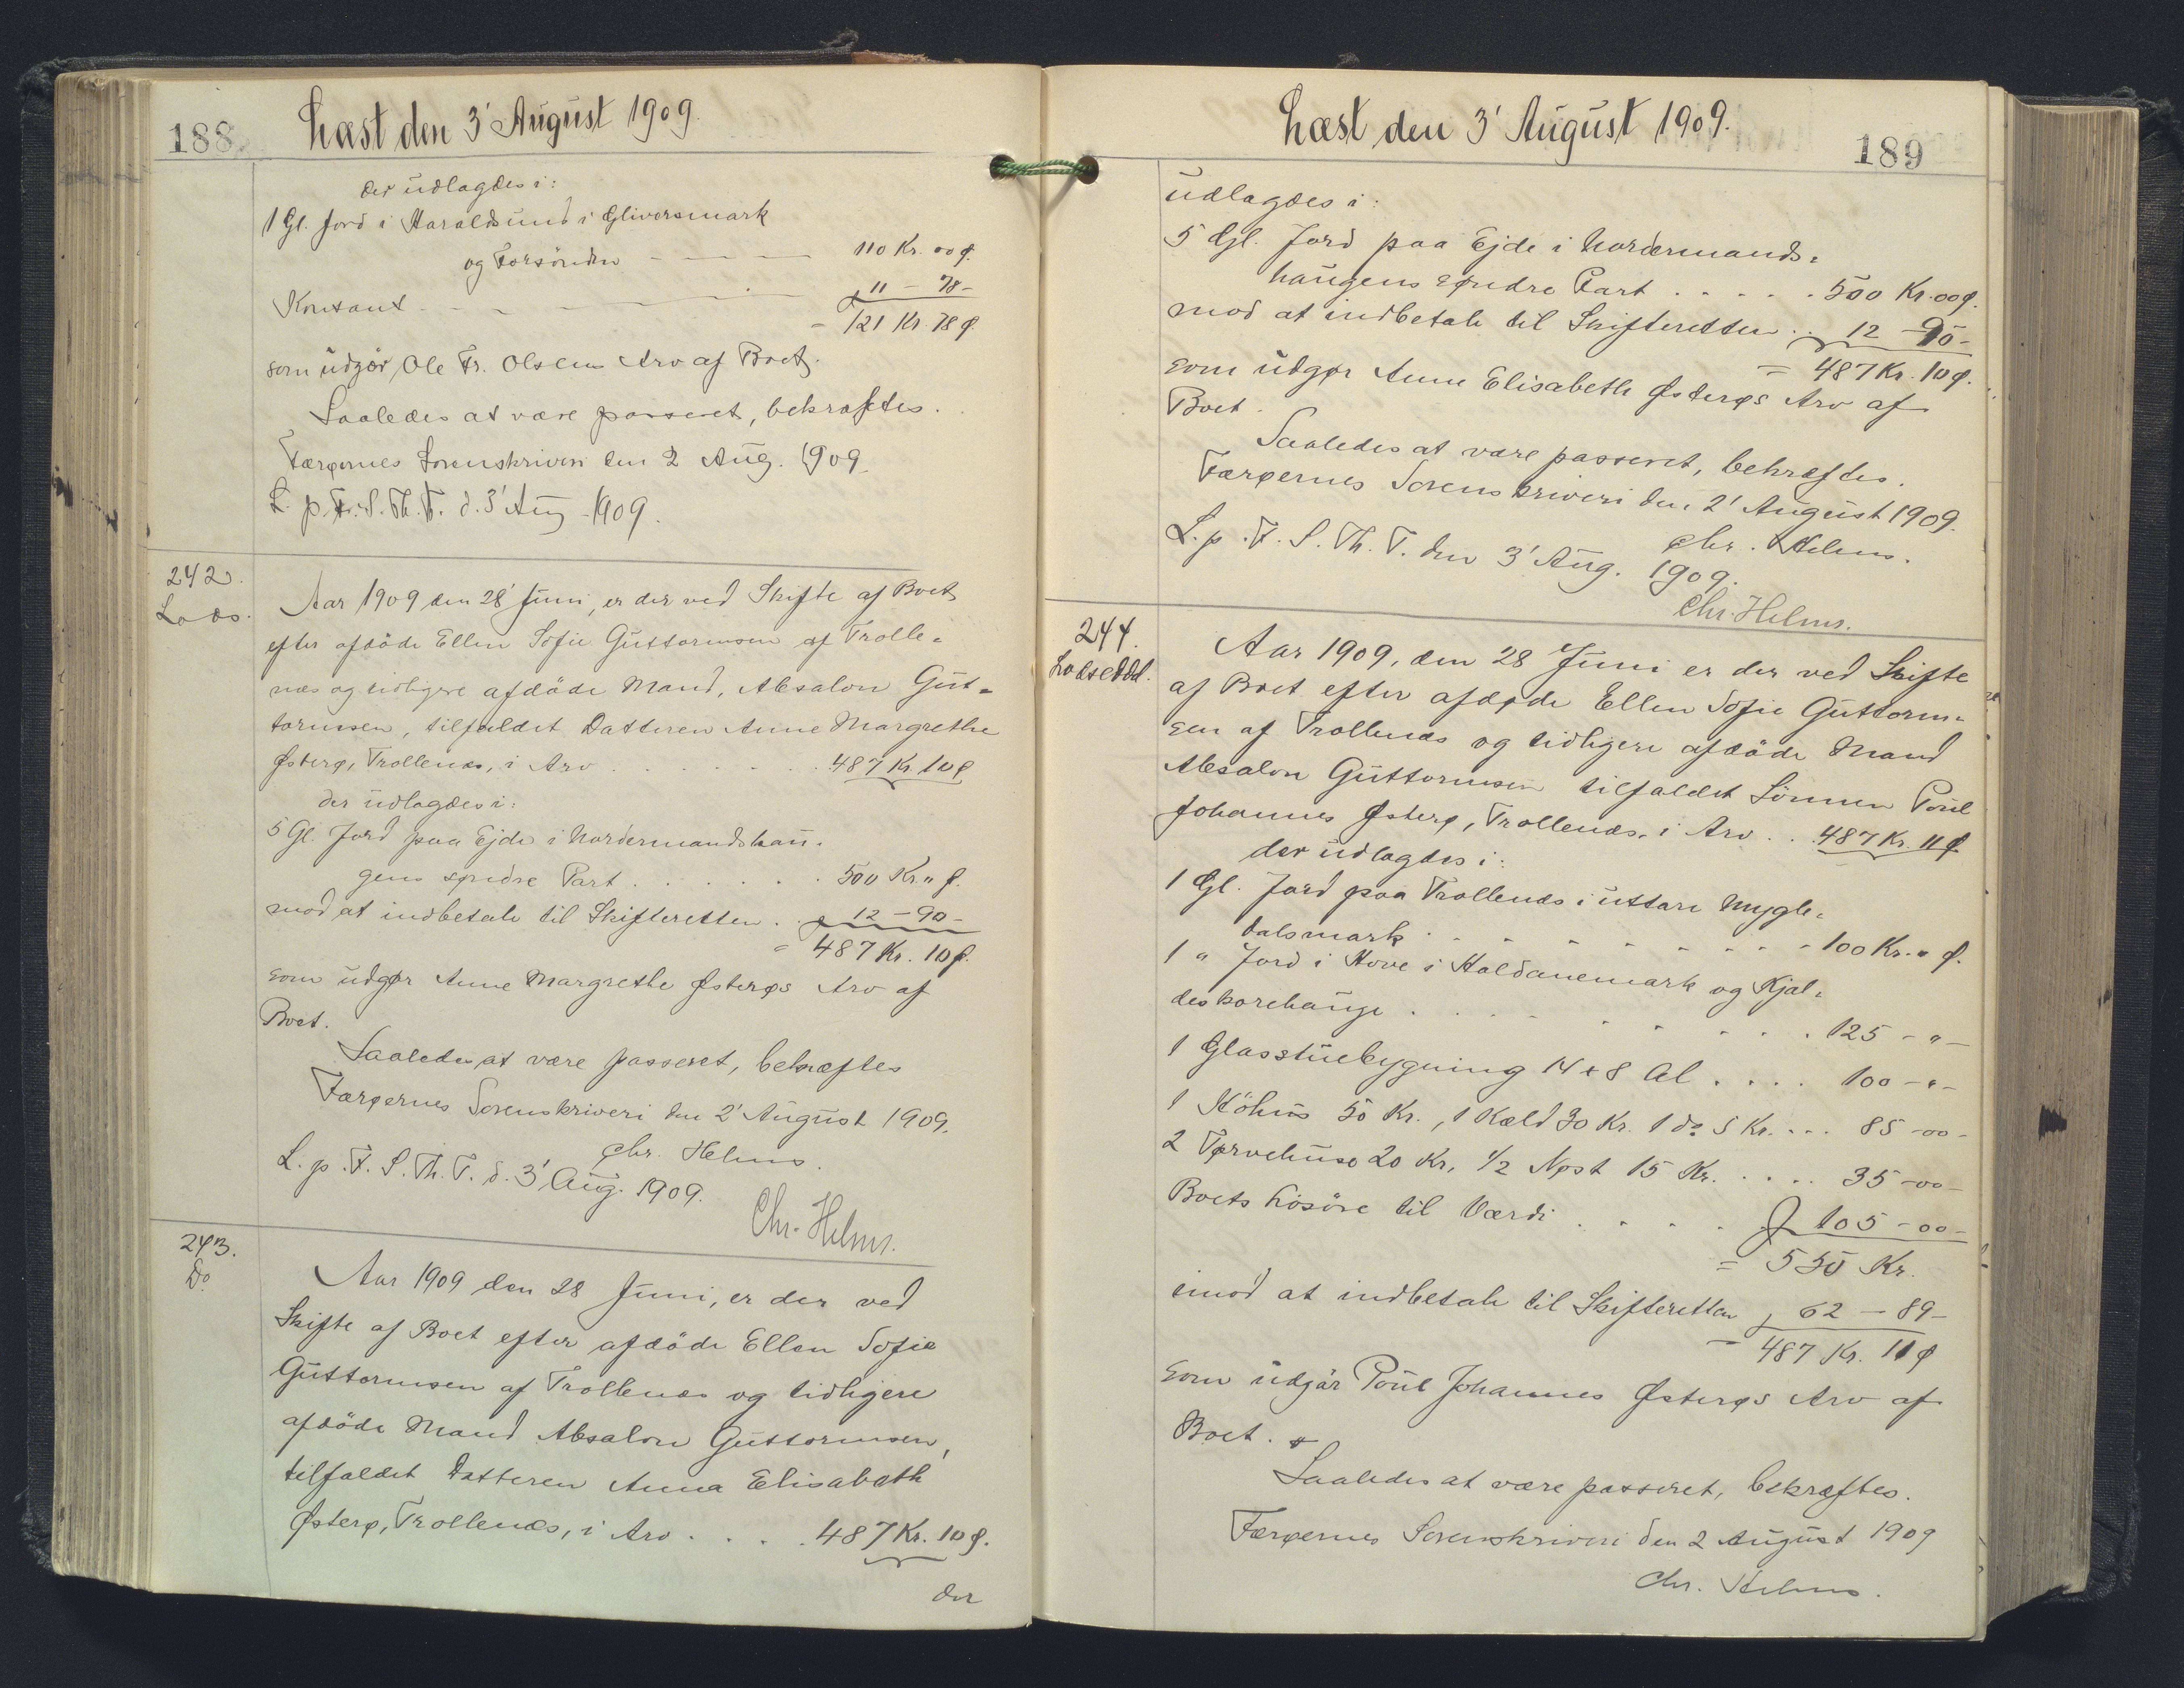 188
Læst den 3' August 1909.
der udlagdes i:
1 Gl. Jord i Haraldsund i Gliversmark
og Forsönden - - - - 110 Kr. 00 ø.
Kontant - - - - 11 - 78 -
= 121 Kr. 78 ø.
som udgör Ole Fr. Olsens Arv af Boet.
Saaledes at være passeret, bekræftes.
Færøernes Sorenskriveri den 2 Aug. 1909
L. p. F. S. Th. T. d. 3' Aug 1909.
242.
Lods.
Aar 1909 den 28' Juni, er der ved Skifte af Boet
efter afdöde Ellen Sofie Guttormsen af Trolle=
næs og tidligere afdöde Mand, Absalon Gut=
tormsen, tilfaldet Datteren Anne Margrethe
Østerø, Trollenæs, i Arv . . . . . . 487 Kr. 10 ø
der udlagdes i:
5 Gl. Jord paa Ejde i Nordermandshau=
gens søndre Part . . . . . . 500 Kr. " ø.
mod at indbetale til Skifteretten . . 12 - 90 -
= 487 Kr. 10 ø.
som udgør Anne Margrethe Østerøs Arv af
Boet.
Saaledes at være passeret, bekræftes
Færøernes Sorenskriveri den 2' August 1909.
Chr. Helms.
L. p. F. S. Th. T. d. 3' Aug. 1909.
Chr. Helms.
243.
Do.
Aar 1909 den 28 Juni, er der ved
Skifte af Boet efter afdöde Ellen Sofie
Guttormsen af Trollenæs og tidligere
afdöde Mand Absalon Guttormsen,
tilfaldet Datteren Anna Elisabeth
Østerø, Trollenæs, i Arv . . . . 487 Kr. 10 ø.
der
Læst den 3' August 1909.
189
udlagdes i:
5 Gl. Jord paa Ejde i Nordermands=
haugens søndre Part . . . . . 500 Kr. 00 ø.
mod at indbetale til Skifteretten . . 12 - 90 -
= 487 Kr. 10 ø.
som udgør Anne Elisabeth Østerøs Arv af
Boet.
Saaledes at være passeret, bekræftes.
Færøernes Sorenskriveri den 2' August 1909.
Chr. Helms.
L. p. F. S. Th. T. den 3' Aug. 1909.
Chr. Helms.
244.
Lodseddel.
Aar 1909, den 28 Juni er der ved Skifte
af Boet efter afdøde Ellen Sofie Guttorm=
sen af Trollenæs og tidligere afdöde Mand
Absalon Guttormsen tilfaldet Sönnen Poul
Johannes Østerø, Trollenæs, i Arv . . 487 Kr. 11 ø
der udlagdes i:
1 Gl. Jord paa Trollenæs i uttara Mygle=
dalsmark . . . . . . . . 100 Kr. " ø.
1 " Jord i Hove i Haldanemark og Kjal=
deskorehauge . . . . . . . . 125 - " -
1 Glasstuebygning 14 x 8 Al . . . . 100 - " -
1 Köhus 50 Kr., 1 Kæld 30 Kr. 1 do 5 Kr. . . . 85 - 00 -
2 Tørvehuse 20 Kr, 1/2 Nøst 15 Kr. . . . . 35 - 00 -
Boets Lösöre til Værdi . . . . . 105 - 00 -
= 550 Kr.
imod at indbetale til Skifteretten 62 - 89 -
= 487 Kr. 11 ø
som udgör Poul Johannes Østerøs Arv af
Boet.
Saaledes at være passeret, bekræftes.
Færøernes Sorenskriveri den 2 August 1909
Chr. Helms.